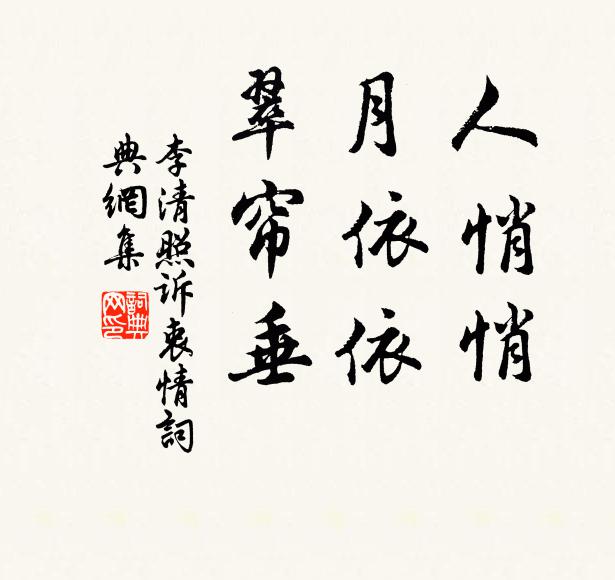 人悄悄
月依依
翠帘垂
李清照訴衷情詞
典網集
詞典網印